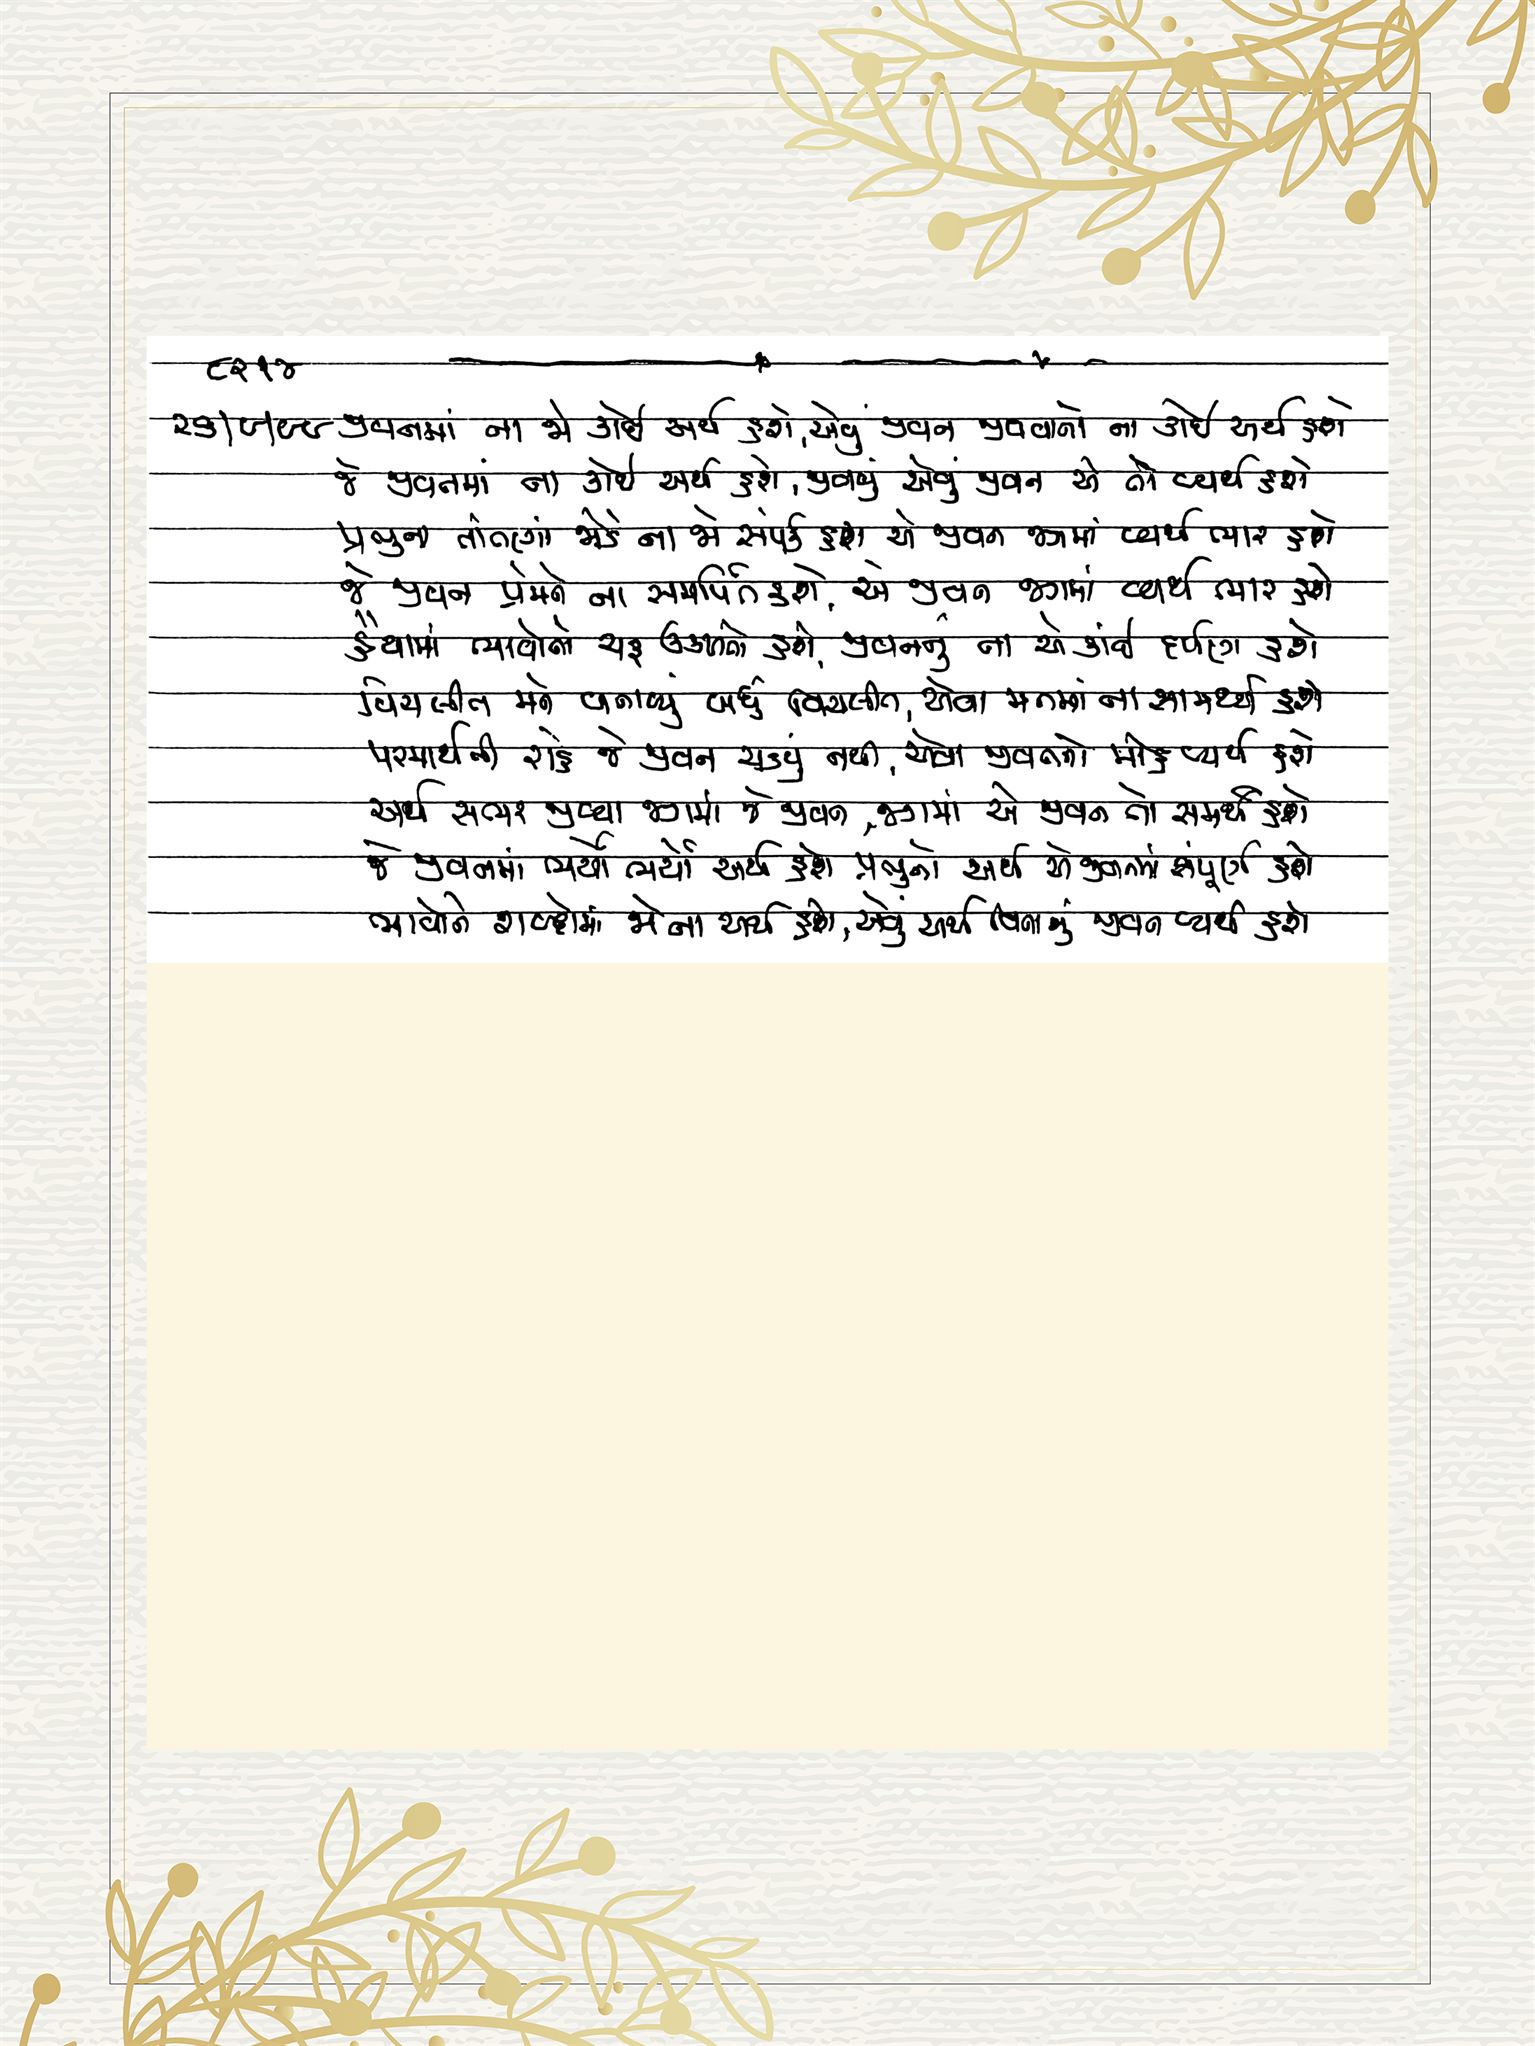 ૮૨૧૪
જીવનમાં ના જો કોઈ અર્થ હશે, એવું જીવન જીવવાનો ના કોઈ અર્થ હશે
જે જીવનમાં ના કોઈ અર્થ હશે, જીવવું એવું જીવન એ તો વ્યર્થ હશે
પ્રભુના તાંતણાં જોડે ના જો સંપર્ક હશે એ જીવન જગમાં વ્યર્થ ભાર હશે
જે જીવન પ્રેમને ના સમર્પિત હશે, એ જીવન જગમાં વ્યર્થ ભાર હશે
હૈયામાં ભાવોનો ચરૂ ઉકળતો હશે, જીવનનું ના એ કાંઈ દર્પણ હશે
વિચલીત મને બનાવ્યું બધું વિચલીત, એવા મનમાં ના સામર્થ્ય હશે
પરમાર્થની રાહે જે જીવન ચડયું નથી, એવા જીવનનો મોહ વ્યર્થ હશે
અર્થ સભર જીવ્યા જગમાં જે જીવન, જગમાં એ જીવન તો સમર્થ હશે
જે જીવનમાં ભર્યો ભર્યો અર્થ હશે પ્રભુનો અર્થ એ જીવનમાં સંપૂર્ણ હશે
ભાવોને શબ્દોમાં જો ના અર્થ હશે, એવું અર્થ વિનાનું જીવન વ્યર્થ હશે